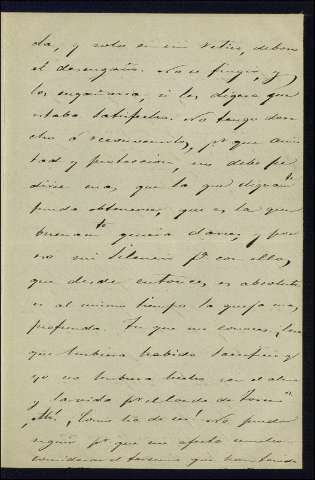 da, y solo en mi retiro, deboro
el desengaño. No se fingir, y
les engañaria, si les dijera que
estaba satisfecho. No tengo dere
cho á reconvenirles, pr que amis
tad y proteccion, no debe pe
dirse mas, que la que dignamte
pueda obtenerse, que es la que
buenamte quiera darse, y por
eso mi silencio pa con ellos,
que desde entonces, es absoluto
es al mismo tiempo la queja mas
profunda. Tu que me conoces,
que hubiera habido sacrificio q
yo no hubiera hecho con el alma
y la vida pr
¡Ah! ¡Como ha de ser! No puedo
seguir pr que me afecto mucho
considerar el terreno que han